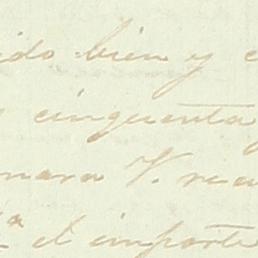 ido bien y e
cinquenta
mara V. rea
el importe